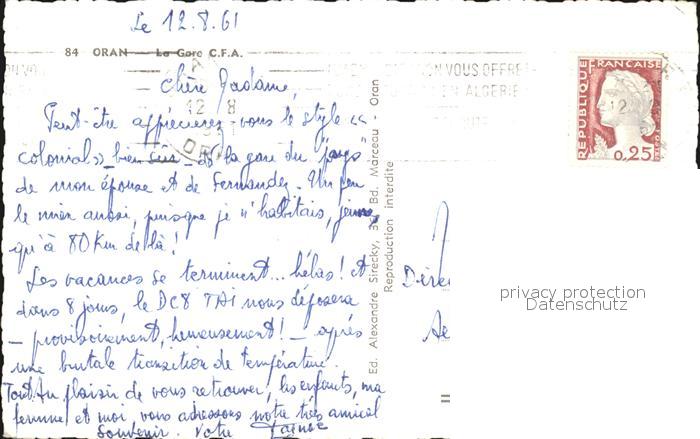 Le 12.8.61
84 ORAN — La Gare C.F.A.
Chère Madame,
Peut-être apprécierez-vous le style «
colonial», bien sûr de la gare du "pays"
de mon épouse et de Fernandez. Un peu
le mien aussi, puisque je n'habitais, jeune,
qu'à 80 Km de là !
Les vacances se terminent... hélas ! et
dans 8 jours, le DC8 TAI nous déposera
— provisoirement, heureusement ! — après
une brutale transition de température.
Tout au plaisir de vous retrouver, les enfants, ma
femme et moi vous adressons notre très amical
souvenir. Votre
Ed. Alexandre Sirecky, Bd. Marceau - Oran
Reproduction interdite
12 8
ON VOUS OFFRE
EN ALGERIE
REPUBLIQUE FRANCAISE
0,25
12
privacy protection
Datenschutz